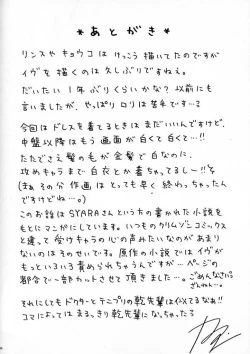 *あとがき*
リンスや キョウコは けっこう 描いてたのですが
イヴを描くのは 久しぶりですねぇ。
だいたい 1年ぶりくらいかな? 以前にも
言いましたが、やっぱり ロリは 苦手です…?
今回は ドレスを着てるときは まだいいんですけど、
中盤以降はもう 画面が 白くて白くて…!!
ただでさえ髪の毛が金髪で白なのに、
攻めキャラまで白衣とか着ちゃってるし…!!
(まぁその分 作画は とっても早く 終わっちゃったん
ですけどねー。)
このお話は SYARAさんという方の書かれた小説を
もとにマンガにしています。いつものクリムゾンコミックス
と違って 受けキャラの心の声みたいなのがあまり
ないのはそのせいです。原作の小説では イヴが
もっといろいろ責められちゃうんですが…ページの
都合で一部カットさせて頂きました…。ごめんなさい
それにしてもドクターとテニプリの乾先輩は似てるなぁ!!
コマによっては まるっきり乾先輩になっちゃってる